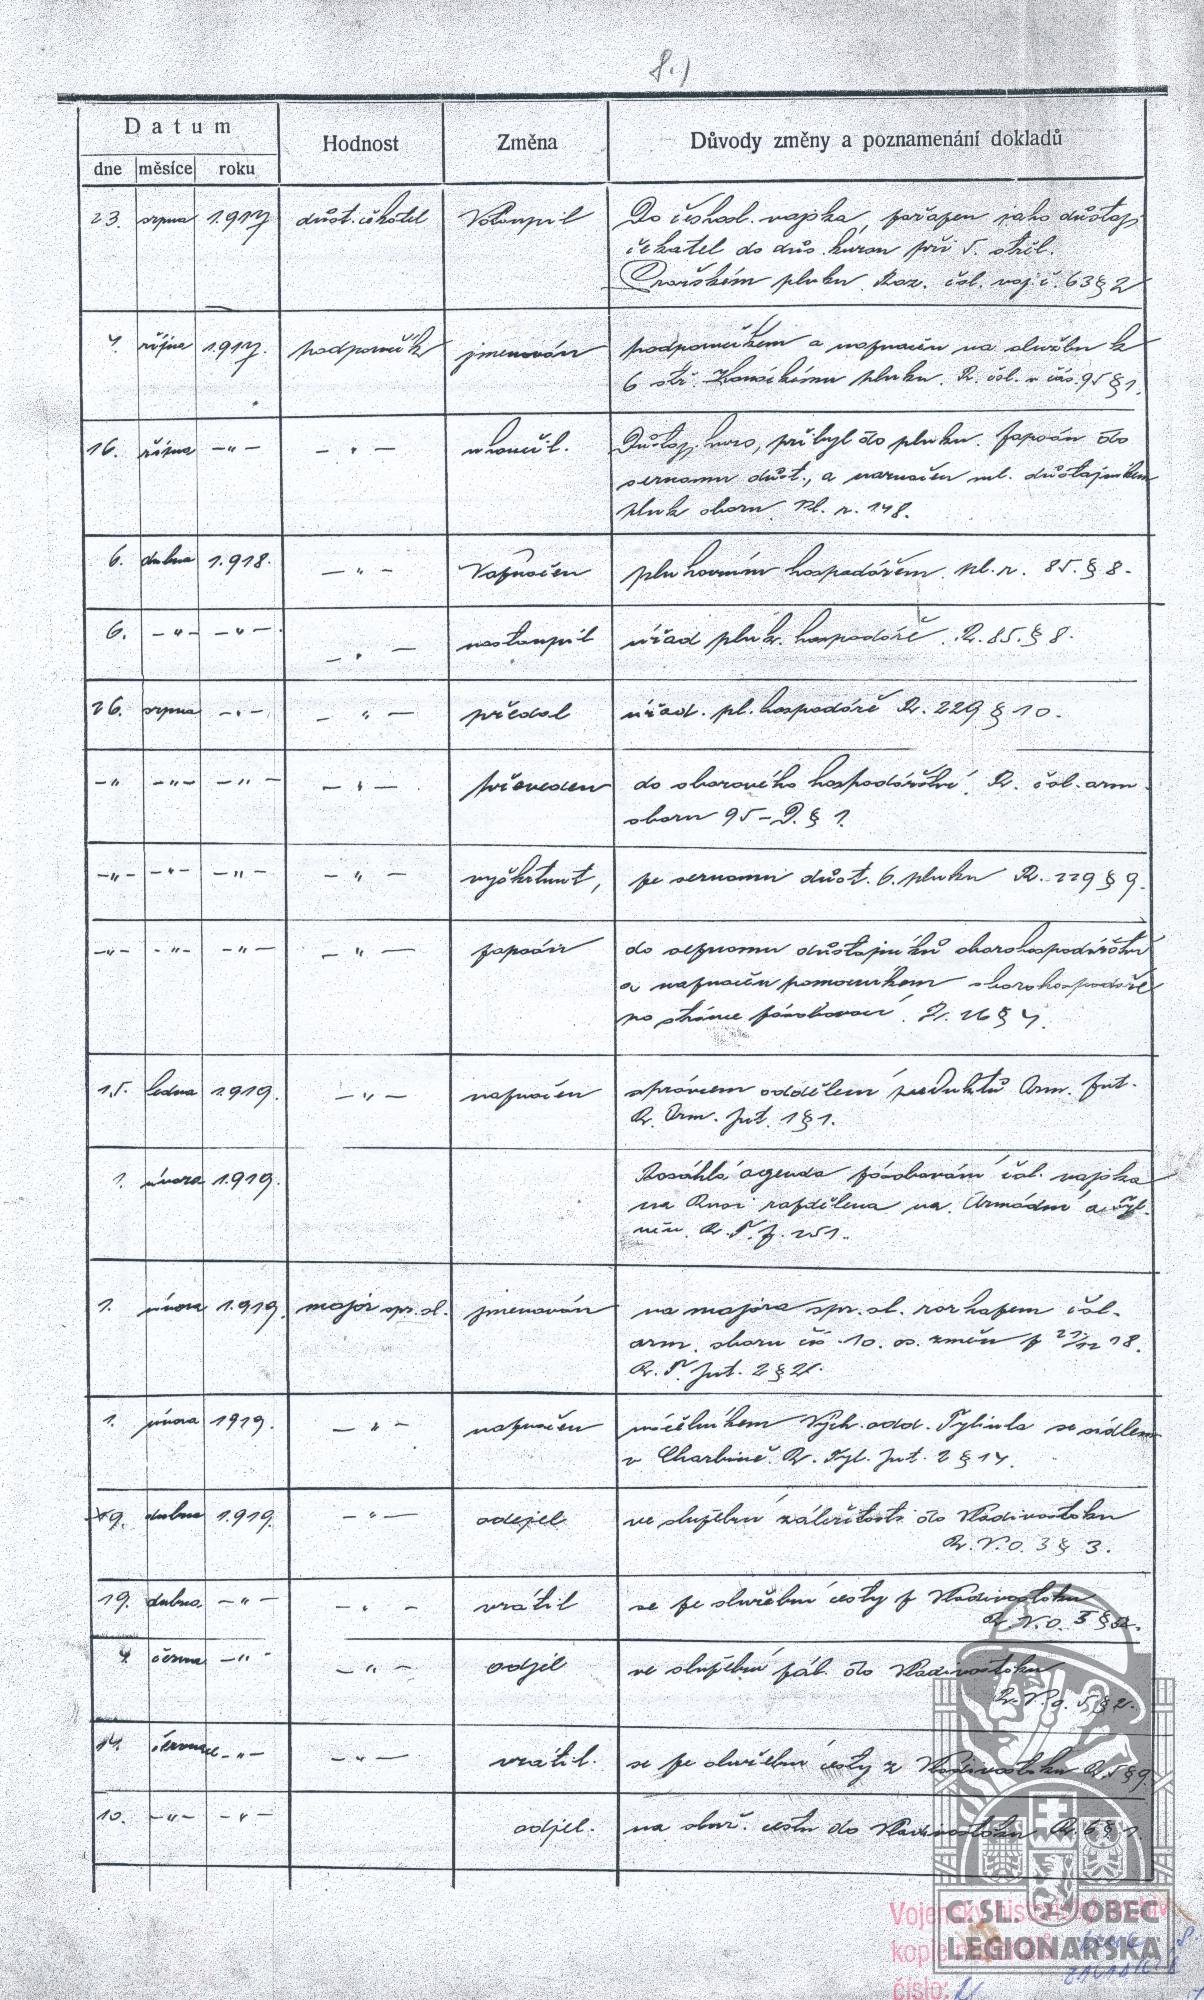 8.)
Datum
Hodnost
Změna
Důvody změny a poznamenání dokladů
dne měsíce roku
23. srpna 1917 důst. čekatel Vstoupil Do českosl. vojska, zařazen jako důstoj.
čekatel do důs. kursu při 5. střel.
Pražském pluku. Roz. čsl. voj. č. 63 § 2
4. října 1917. podporučík jmenován podporučíkem a naznačen na službu k
6 stř. Hanáckému pluku. R. čsl. v. čás. 95 § 1.
16. října -"- -"- ukončil. Důstoj. kurs, přibyl do pluku. Zapsán do
seznamu důst., a naznačen ml. důstojníkem
pluk. sboru. Pl. r. 148.
6. dubna 1918. -"- Naznačen plukovním hospodářem. pl. r. 85. § 8.
6. -"- -"- -"- nastoupil úřad pluk. hospodáře. R. 85. § 8.
26. srpna -"- -"- předal úřad. pl. hospodáře R. 229 § 10.
-"- -"- -"- -"- převeden do sborového hospodářství. R. čsl. arm.
sboru 95 - D. § 1.
-"- -"- -"- -"- vyškrtnut, ze seznamu důst. 6. pluku R. 229 § 9.
-"- -"- -"- -"- zapsán do seznamu důstojníků sborohospodářství
a naznačen pomocníkem sborohospodáře
po stránce zásobovací. R. 26 § 4.
15. ledna 1919. -"- naznačen správcem oddělení produktů Arm. Int.
R. Arm. Int. 1 § 1.
1. února 1919. Rosáhlá agenda zásobování čsl. vojska
na Rusi rozdělena na Armádní a týl-
R. T. z. 251.
1. února 1919. major spr. sl. jmenován na majora spr. sl. rozkazem čsl.
arm. sboru čís. 10. os. změn z 21/12 18.
R. T. Int. 2 § 2.
1. února 1919. -"- naznačen náčelníkem Vých. odd. Týlintu se sídlem
v Charbině. R. Týl. Int. 2 § 14.
9. dubna 1919. -"- odejel ve služební záležitosti do Vladivostoku
R. V. O. 3 § 3.
19. dubna. -"- -"- vrátil se ze služební cesty z Vladivostoku
R. V. O.
4. června -"- -"- odjel ve služební zál. do Vladivostoku
R. V. o. 5 § 2.
14. července -"- -"- vrátil. se ze služební cesty z Vladivostoku R. 5 § 9.
10. -"- -"- odjel. na služ. cestu do Vladivostoku R. 6 § 1.
Vojenský historický archiv
Č. SL. OBEC
LEGIONÁŘSKÁ
číslo: